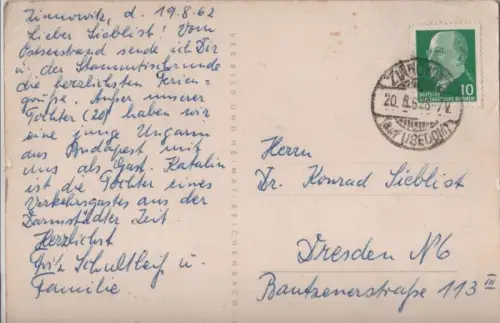 Zinnowitz, d. 19.8.62
Lieber Sieblist! Vom
Ostseestrand sende ich Dir
u. der Stammtischrunde
die herzlichsten Ferien-
grüße. Außer unserer
Tochter (20) haben wir
eine junge Ungarin
aus Budapest mit
uns als Gast. Katalin
ist die Tochter eines
Verkehrsgastes aus der
Darmstädter Zeit.
Herzlichst
Fritz Schultheiß u.
Familie.
VERLAG BILD UND HEIMAT REICHENBACH
10
USEDOM
Herrn
Dr. Konrad Sieblist
Dresden N6
Bautzenerstraße 113 III